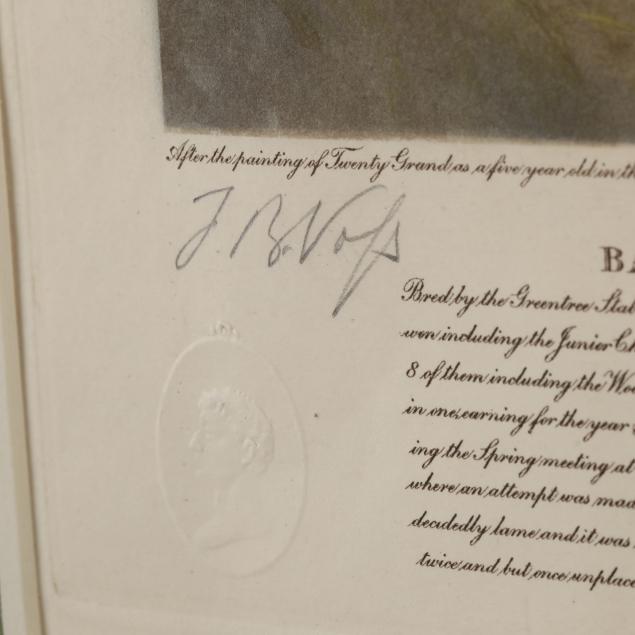 After the painting of Twenty Grand as a five year old in th
F. B. Voss
BA
Bred by the Greentree Stab
won including the Junior Ch
8 of them including the Wo
in one, earning for the year
ing the Spring meeting at
where an attempt was mad
decidedly lame and it was
twice and but once unplace